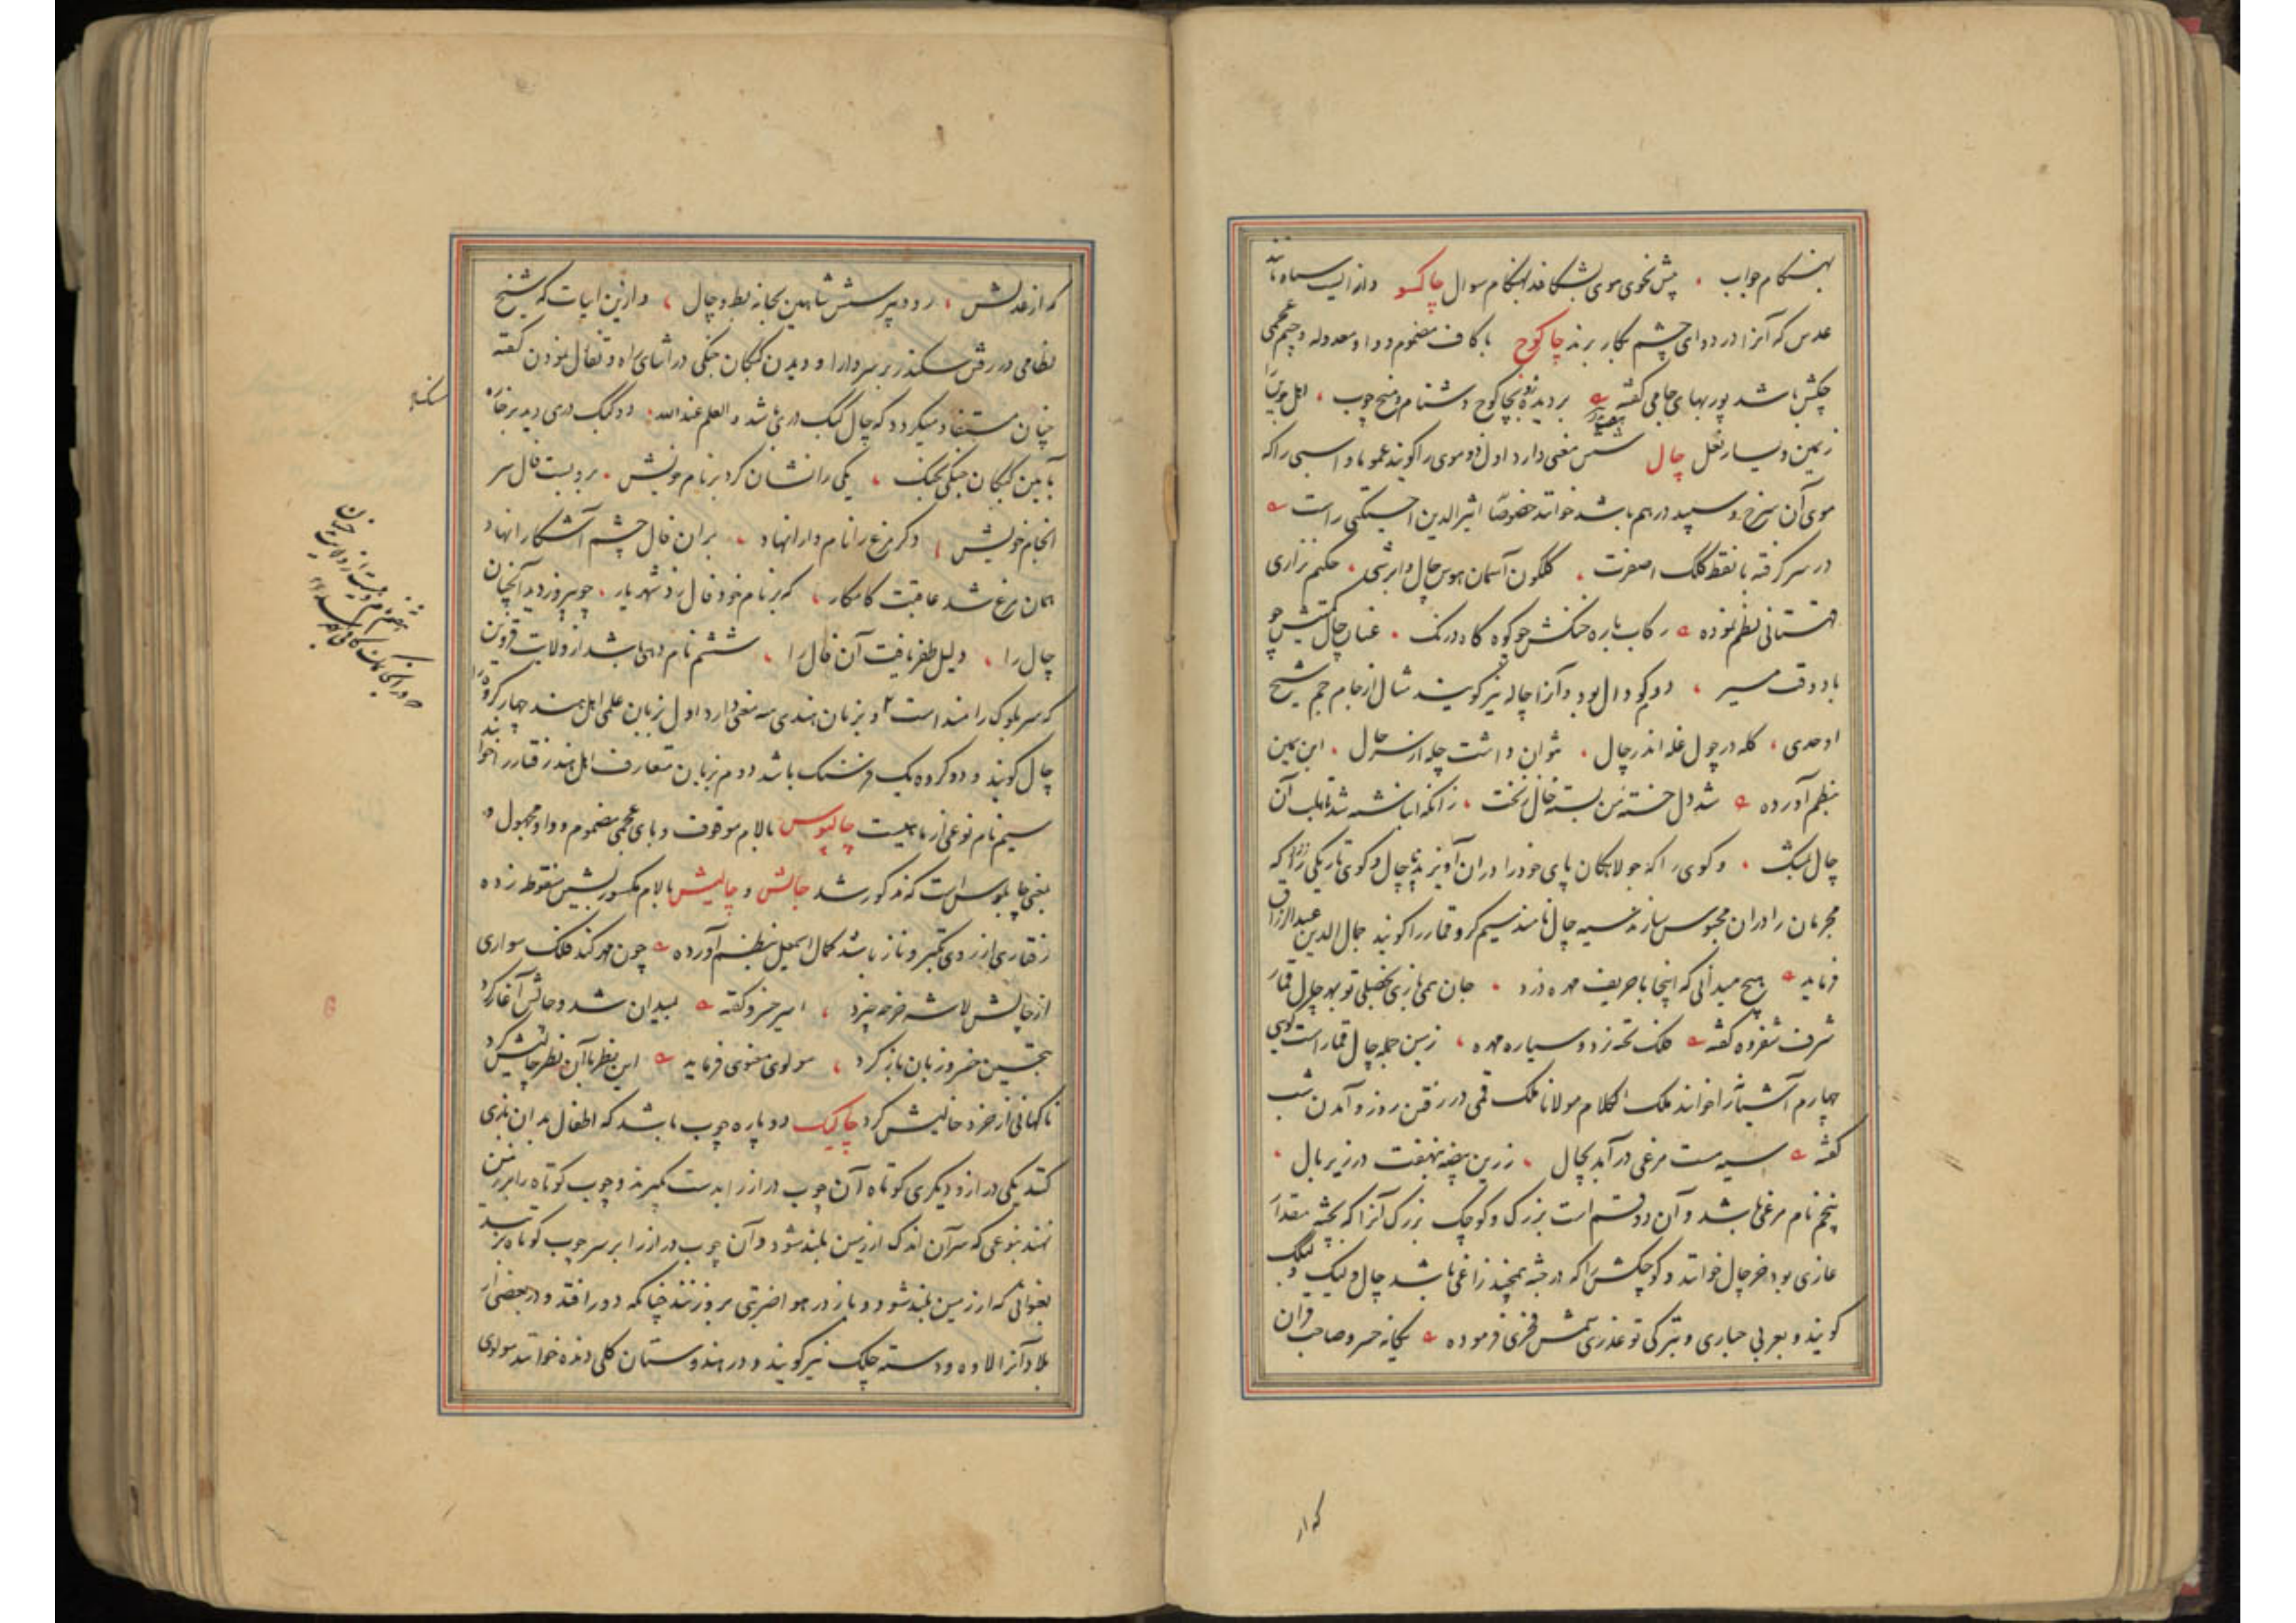 بهنگام جواب ، پیش نحوی موی بشکافد بهنگام سوال چاکسو دانه ایست سیاه مانند
عدس که آنرا در دوای چشم بکار برند چاکوچ با کاف مضموم و واو معدوله و جیم عجمی
چکش باشد پوربهای جامی گفته بر دیده بچاکوچ دشنام و میخ چوب ، اهل
زیمین و یسار نعل چال شش معنی دارد اول دوموی را گویند عموما و اسبی را که
موی آن سرخ و سپید درهم باشد خوانند خصوصا اثیرالدین اخسیکتی راست
در سر گرفته با نقط کلک اصفرت ، گلگون آسمان هوس چال و ابرشی ، حکیم نزاری
قهستانی نظم نموده رکاب باره خنکش چو کوه گاه درنگ ، عنان چال چو
باد وقت مسیر ، دوم گودال بود و آنرا چاله نیز گویند مثال از جام جم شیخ
اوحدی ، گله در چول غله اندر چال ، نتوان داشت چله از سر حال ، ابن یمین
بنظم آورده شد دل خسته من بسته خال زنخت ، زانکه انباشته شد آن
چال بمشک ، و گوی را که جولاهگان پای خود را دران آویزند پاچال و گوی تاریکی را که
مجرمان را دران محبوس سازند سیه چال نامند سیم گرو قمار را گویند جمال الدین عبدالرزاق
فرماید هیچ میدانی که اینجا با حریف مهره دزد ، جان همی بازی تو بهر چال قمار
شرف شفروه گفته فلک تخته نرد و سیاره مهره ، زمین جمله چال قمار است گویی
چهارم آشیانرا خوانند ملک الکلام مولانا ملک قمی در رفتن روز و آمدن شب
گفته سیه مست مرغی درآمد بچال ، زرین بیضه بنهفت در زیر بال ،
پنجم نام مرغی باشد و آن دو قسم است بزرگ و کوچک بزرگ آنرا که بجثه مقدار
غازی بود خرچال خوانند و کوچکش را که در جثه همچند زاغی باشد چال و
گویند و بعربی حباری و بترکی توغدری شمس فخری فرموده یگانه خسرو صاحب قران
که از
که از عدلش ، رود پرسش شاهین بخانه بط و چال ، و ازین ابیات که شیخ
نظامی در رفتن سکندر بر سر دارا و دیدن کبکان جنگی در اثنای راه و تفاءل نمودن گفته
چنان مستفاد میگردد که چال کبک دری باشد والعلم عندالله ، دو کبک دری دید بر خاره
بآیین کبکان جنگی بجنگ ، یکی را نشان کرد بر نام خویش ، برو بست فال سر
انجام خویش ، دگر مرغ را نام دارا نهاد ، بران فال چشم آشکارا نهاد
همان مرغ شد عاقبت کامکار ، که بر نام خود فال زد شهریار ، چو پیروز دید آنچنان
چال را ، دلیل ظفر یافت آن فال را ، ششم نام دهی باشد از ولایت قزوین
که سر بلوک رامند است ۲ و بزبان هندی سه معنی دارد اول بزبان علمی اهل هند چهار کروه را
چال گویند و دو کروه یک فرسنگ باشد دوم بزبان متعارف اهل هند رفتار را خوانند
سیم نام نوعی از ماهیست چالپوس بالام موقوف و بای عجمی مضموم و واو مجهول
بمعنی چاپلوس است که مذکور شد چالش و چالیش بالام مکسور بشین منقوطه زده
رفتاری از روی تکبر و ناز باشد کمال اسمعیل بنظم آورده چون مهر کند فلک سواری
از چالش لاشه خر چه خیزد ، امیر خسرو گفته بمیدان شد و چالش آغاز کرد
بتحسین خسرو زبان باز کرد ، مولوی معنوی فرماید این نظر با آن نظر چالیش کرد
ناگهانی از خرد خالیش کرد چالیک دو پاره چوب باشد که اطفال بدان بازی
کنند یکی دراز و دیگری کوتاه آن چوب دراز را بدست گیرند و چوب کوتاه را بر زمین
نهند بنوعی که سر آن اندک از زمین بلند شود و آن چوب دراز را بر سر چوب کوتاه
بعنوانی که از زمین بلند شود و باز در هوا ضربتی بروزنند چنانکه دور افتد و در بعضی از
بلاد آنرا لاوه و دسته چلک نیز گویند و در هندوستان کلی دنده خوانند مولوی